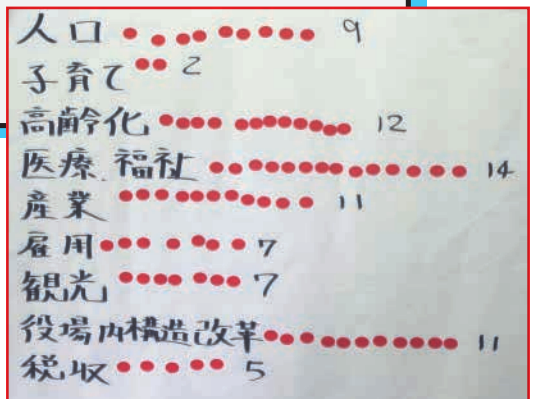 人口 9
子育て 2
高齢化 12
医療、福祉 14
産業 11
雇用 7
観光 7
役場内構造改革 11
税収 5